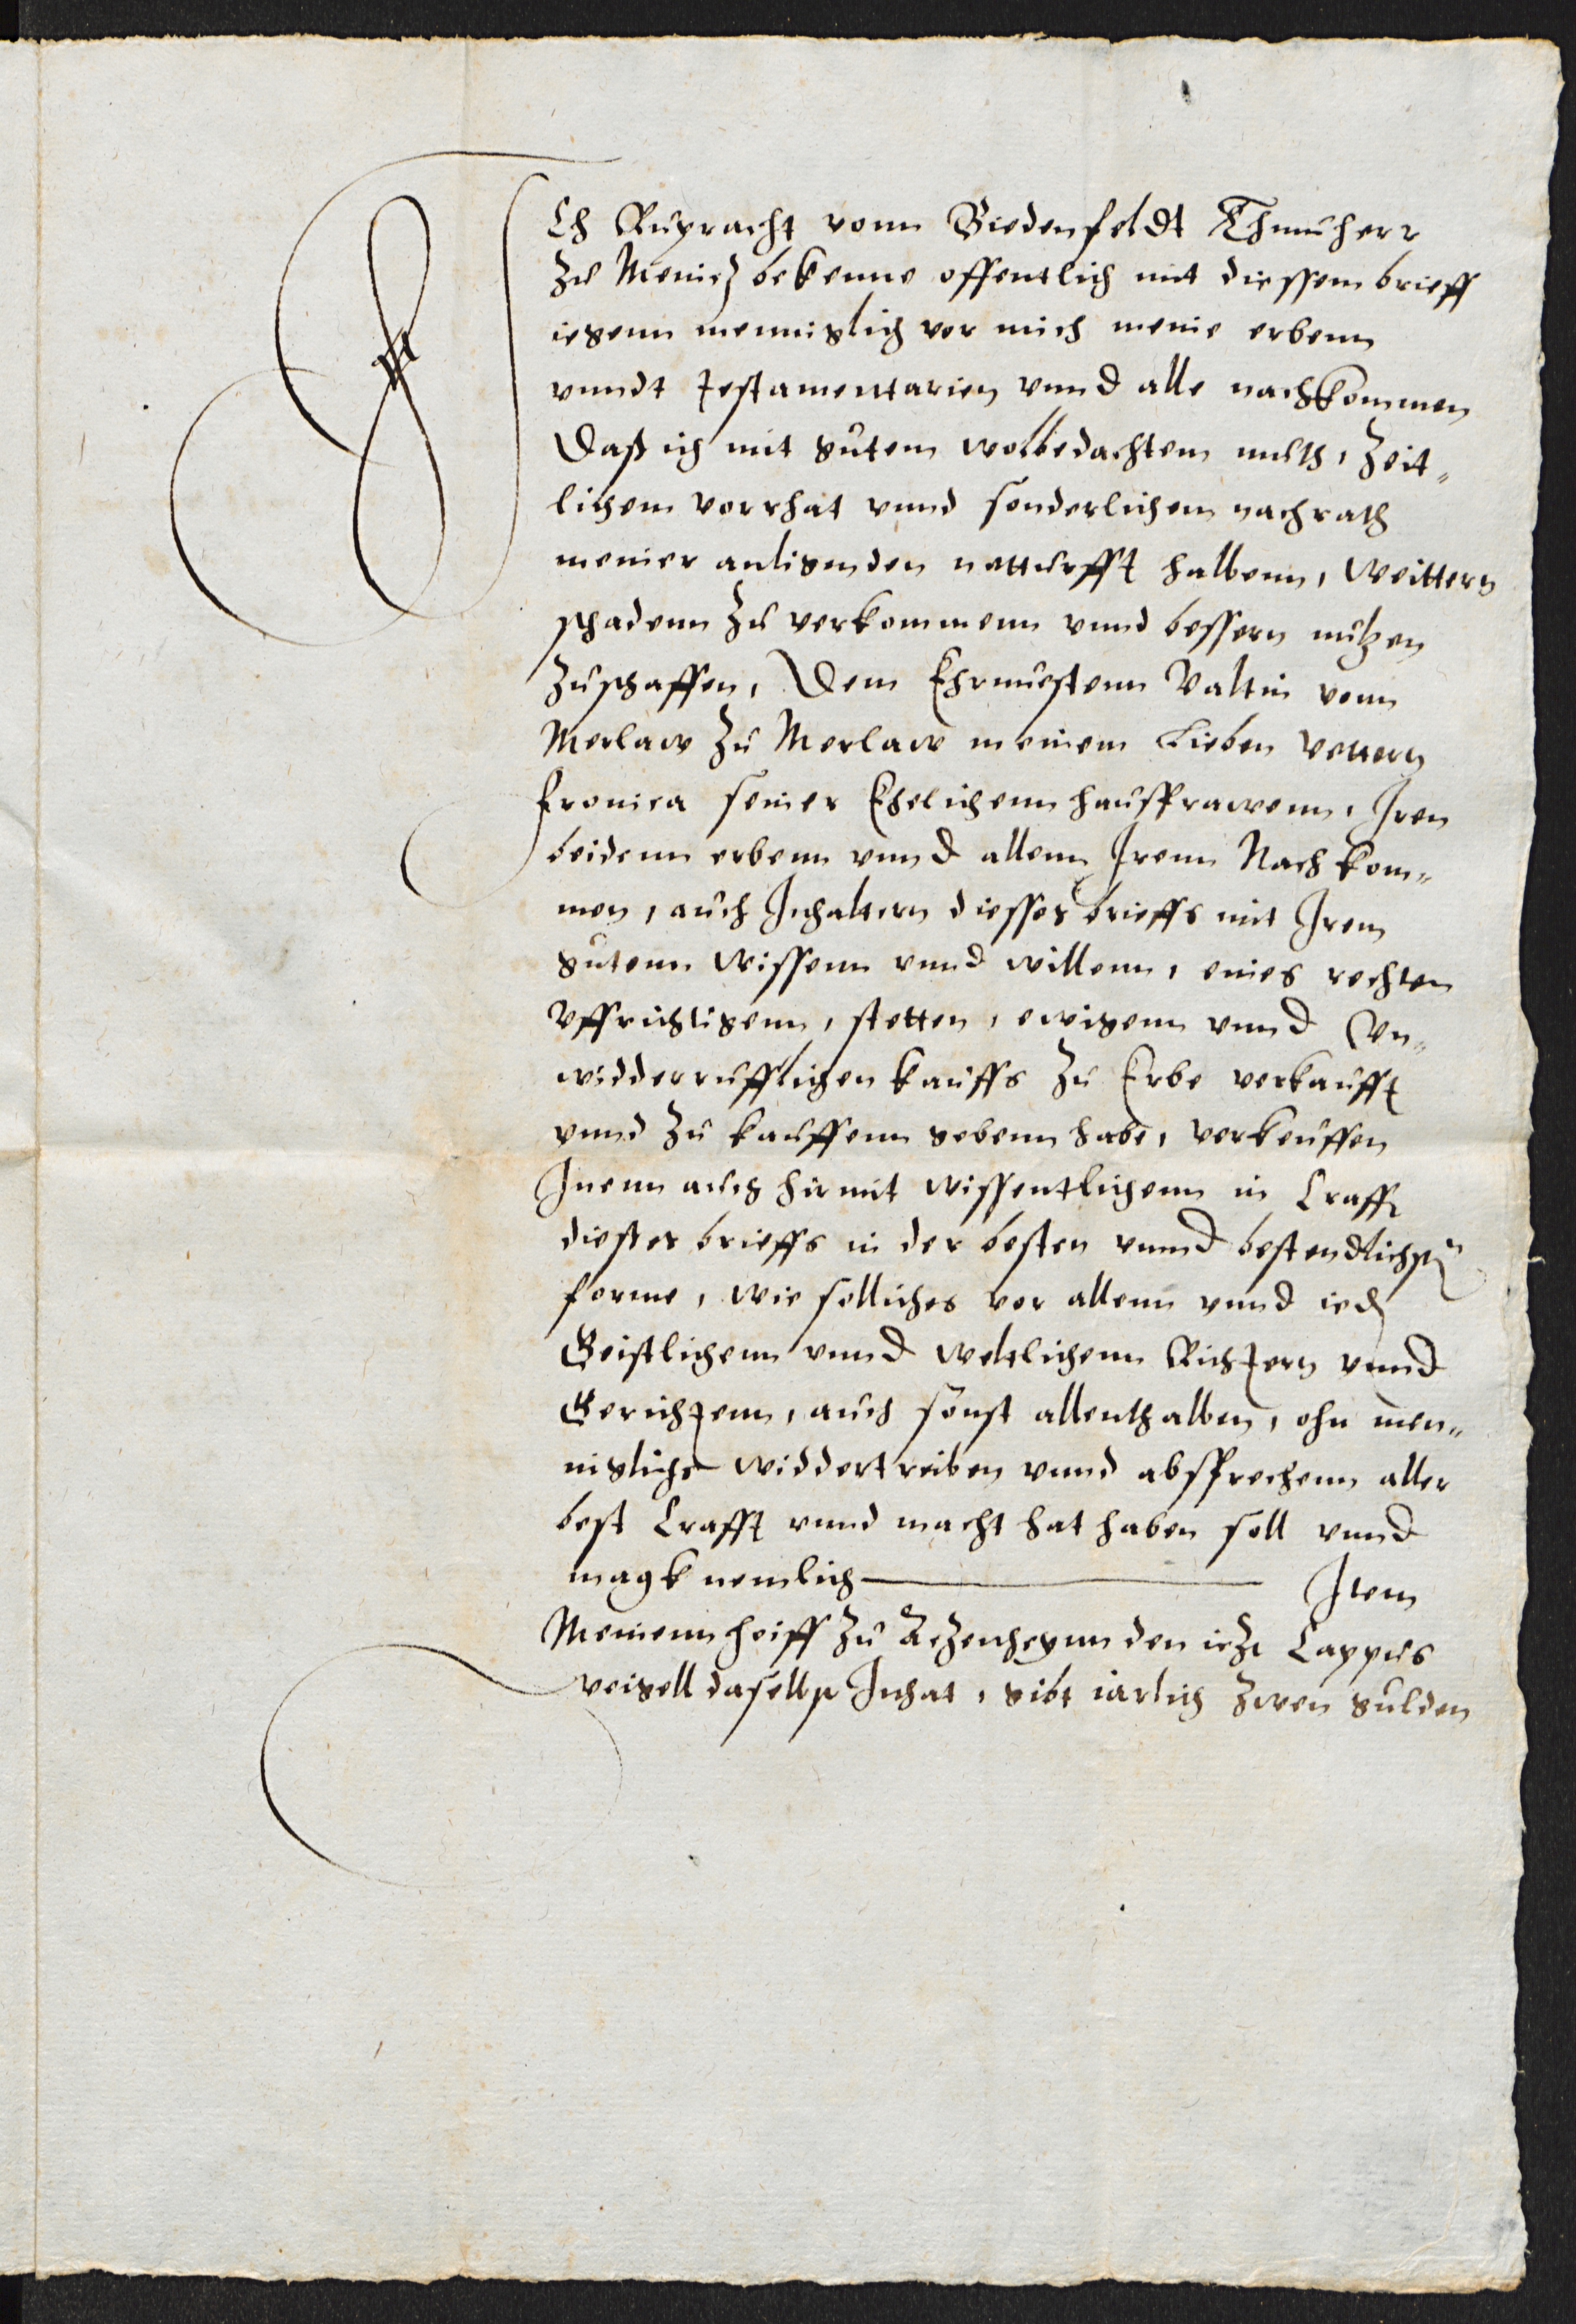 ICh Ruprecht vonn Biedenfeldt Thumherr
zu Meintz bekenne offentlich mit diessem brieff
iegenn mennigklich vor mich meine erbenn
vnndt testamentarien vnnd alle nachkommen
Daß ich mit gutem wolbedachtem muth, zeit„
lichem vorrhat vnnd sonderlichem nachrath
meiner anligenden notturfft halbenn, weittern
schadenn zu verkommenn vnnd bessern nutzen
zuschaffen, Dem Ehrnuestenn Valtin vonn
Merlaw zu Merlaw meinem Lieben vettern
fronica seiner Ehelichenn hausfrawenn, Iren
beidenn erbenn vnnd allenn Irenn Nachkom„
men, auch Inhaltern diesses brieffs mit Irem
gutenn wissenn vnnd willenn, eines rechten
vffrichtigenn, stetten, ewigenn vnnd Vn„
widderrufflichen kauffs zu Erbe verkaufft
vnnd zu kauffenn gebenn habe, verkeuffen
Inenn auch hirmit wissentlichenn in Crafft
dießes brieffs in der besten vnnd bestendlichsten
forme, wie solliches vor allenn vnnd ieden
Geistlichenn vnnd weltlichenn Richtern vnnd
Gerichtenn, auch sonst allenthalben, ohn men„
nigliches widdertreiben vnnd absprechenn aller
best Crafft vnnd macht hat haben soll vnnd
magk nemlich Item
Meinenn hoiff zu den ietzt Cappus
veigell daselbst Inhat, gibt iarlich zwen gulden